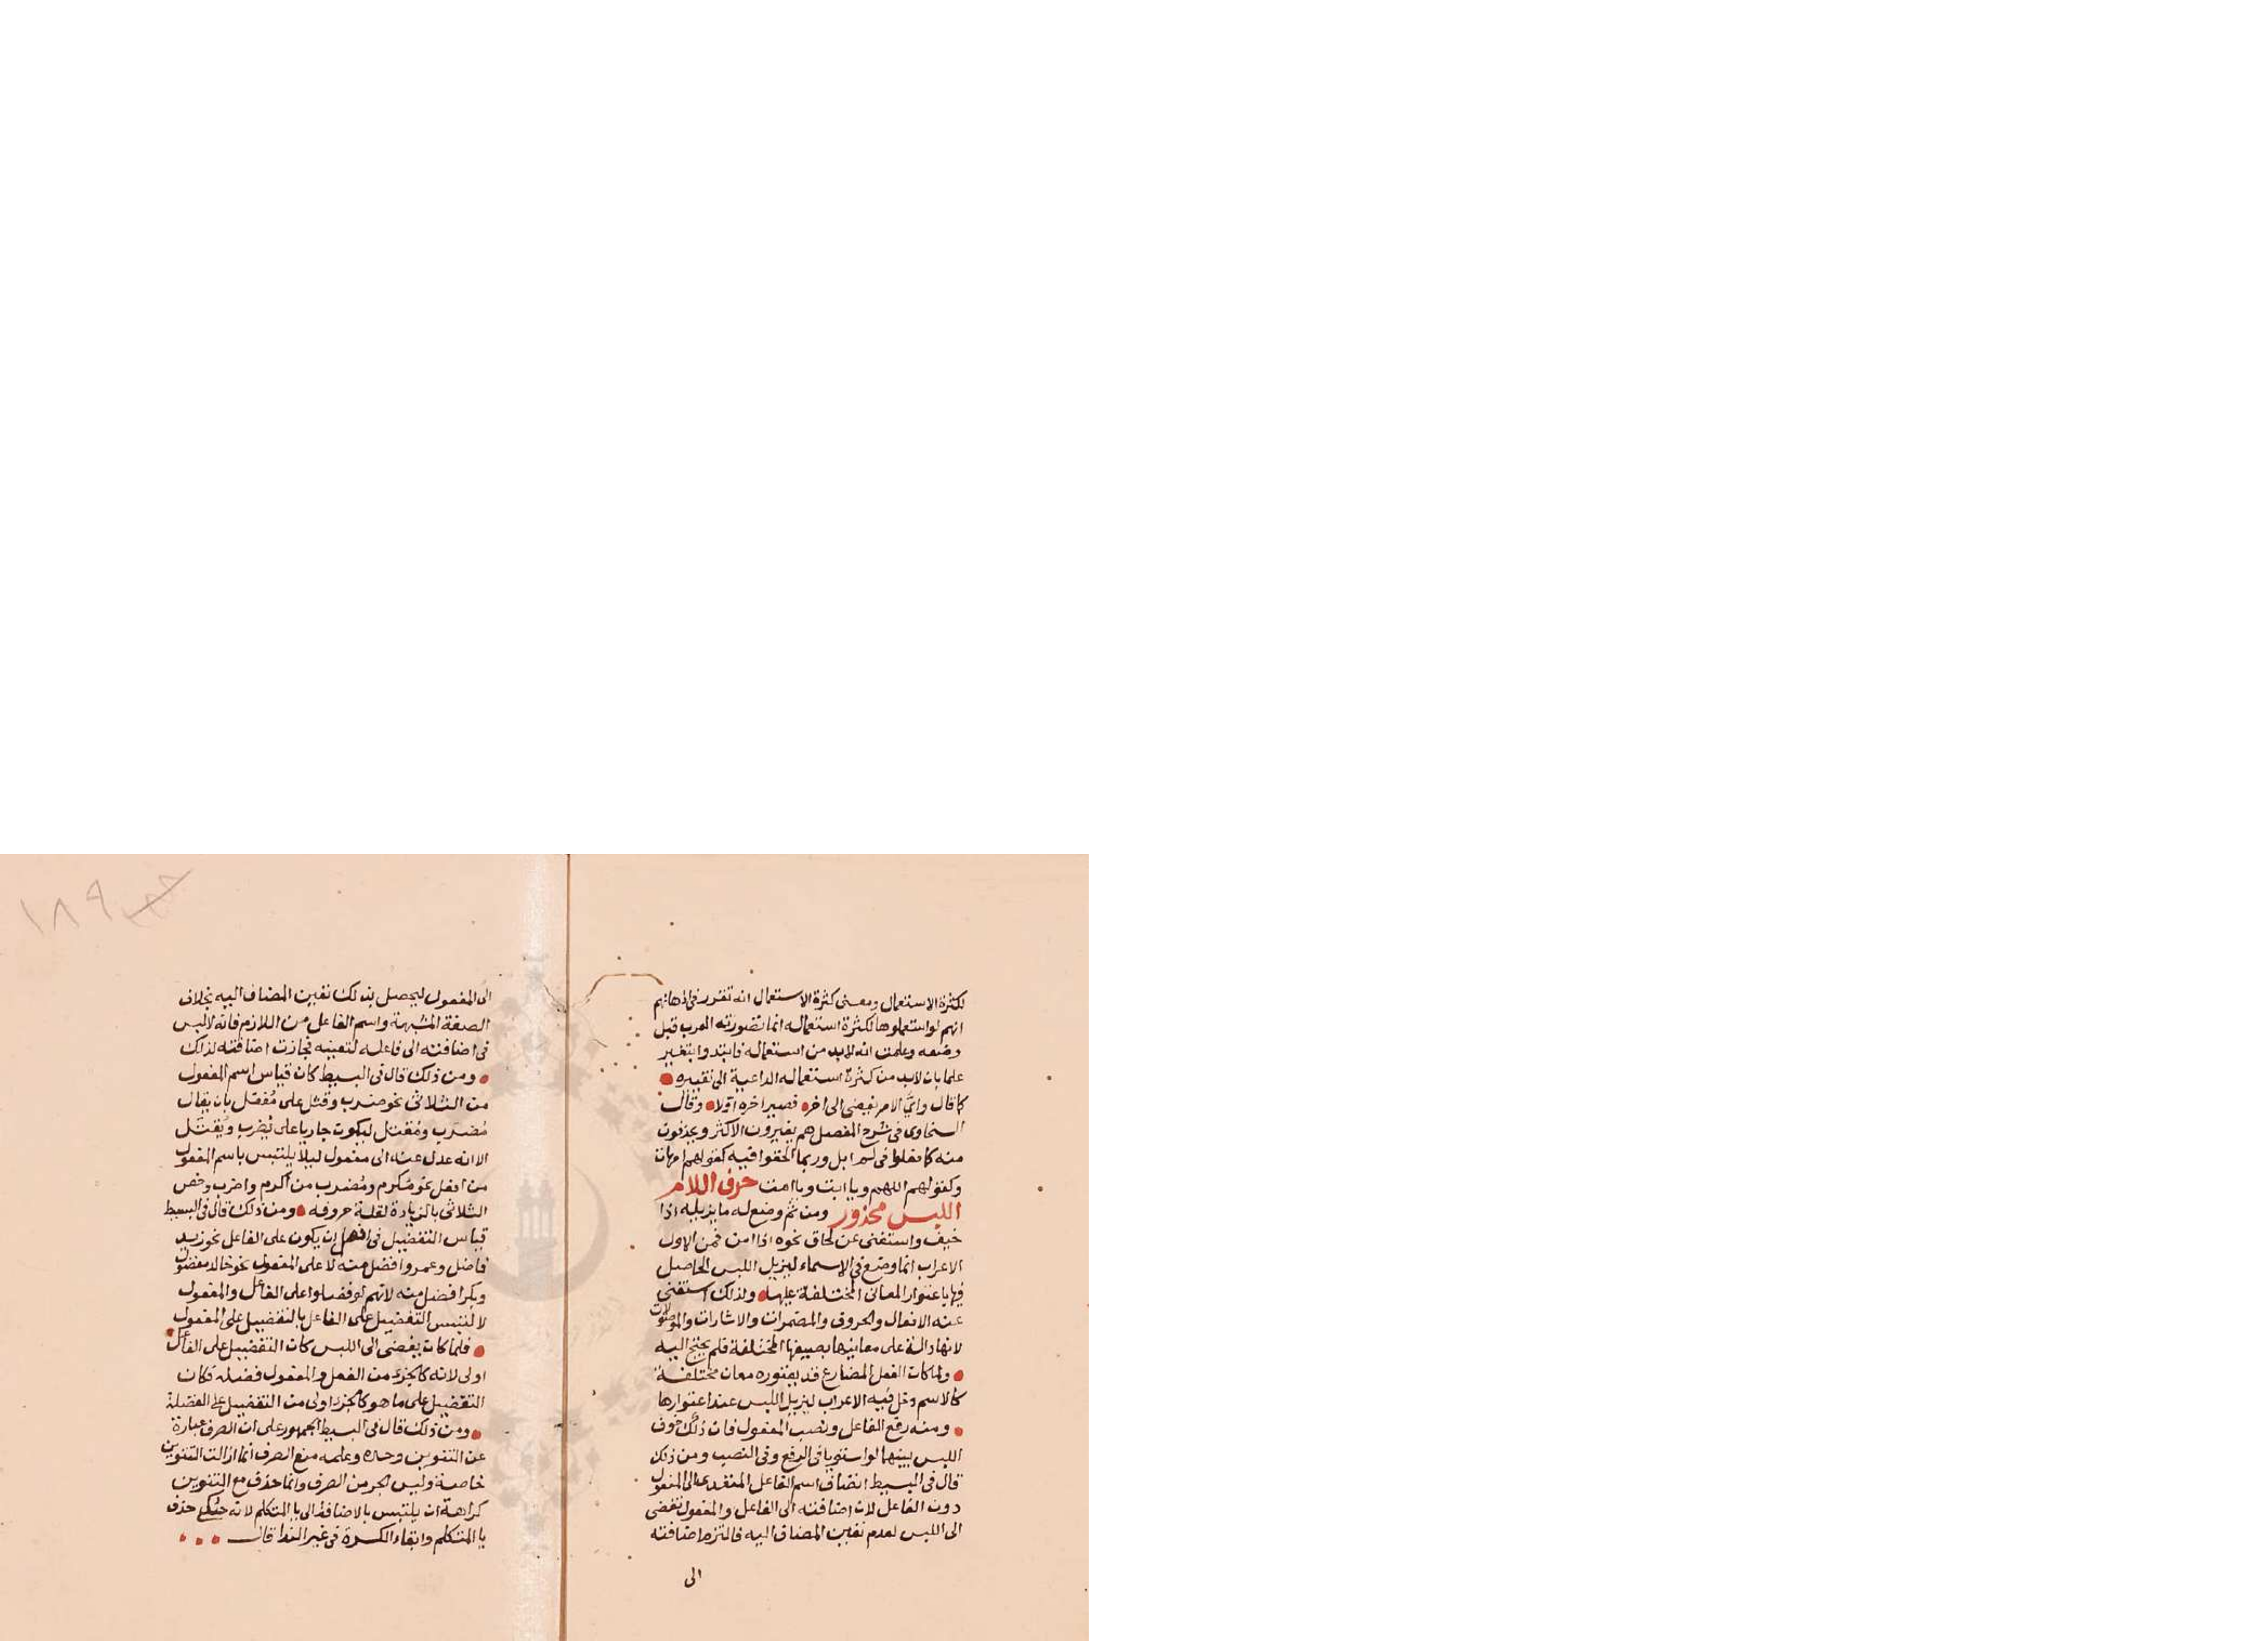 لكثرة الاستعمال ومعنى كثرة الاستعمال انه تقرر فى اذهانهم
انهم لو استعملوها لكثرة استعماله انما تصورته العرب قبل
وضعه وعلمت انه لابد من استعماله فابتدوا بتغيير
علما بان لابد من كثرة استعماله الداعية الى تغييره
كما قال واىّ الامر يفضى الى اخره فصير اخره اولا وقال
السخاوى فى شرح المفصل هم يغيرون الاكثر ويحذفون
منه كما فعلوا فى لم ابل وربما الحقوا فيه كقولهم امهات
وكقولهم اللهم ويا ابت ويا امت حرف اللام
اللبس محذور ومن ثم وضع له ما يزيله اذا
خيف واستغنى عن لحاق نحوه اذا امن فمن الاول
الاعراب انما وضع فى الاسماء ليزيل اللبس الحاصل
فيها باعتوار المعانى المختلفة عليها ولذلك استغنى
عنه الافعال والحروف والمضمرات والاشارات والموصولات
لانها دالة على معانيها بصيغها المختلفة فلم يحتج اليه
ولما كان الفعل المضارع قد يعتوره معان مختلفة
كالاسم دخل فيه الاعراب ليزيل اللبس عند اعتوارها
ومنه رفع الفاعل ونصب المفعول فان ذلك خوف
اللبس بينهما لو استويا فى الرفع وفى النصب ومن ذلك
قال فى البسيط انضاف اسم الفاعل المتعدى الى المفعول
دون الفاعل لان اضافته الى الفاعل والمفعول تفضى
الى اللبس لعدم تعين المضاف اليه فالتزم اضافته
الى
١٨٩
الى المفعول ليحصل بذلك تعين المضاف اليه بخلاف
الصفة المشبهة واسم الفاعل من اللازم فانه لا لبس
فى اضافته الى فاعله لتعينه فجازت اضافته لذلك
ومن ذلك قال فى البسيط كان قياس اسم المفعول
من الثلاثى نحو ضرب وقتل على مُفعَل بان يقال
مُضرَب ومُقتَل ليكون جاريا على يُضرب ويُقتَل
الا انه عدل عنه الى مفعول ليلا يلتبس باسم المفعول
من افعل نحو مُكرم ومُضرب من اكرم واضرب وخص
الثلاثى بالزيادة لقلة حروفه ومن ذلك قال فى البسيط
قياس التفضيل فى افعل ان يكون على الفاعل نحو زيد
فاضل وعمرو افضل منه لا على المفعول نحو خالد مفضول
وبكر افضل منه لانهم لو فضلوا على الفاعل والمفعول
لالتبس التفضيل على الفاعل بالتفضيل على المفعول
فلما كان يفضى الى اللبس كان التفضيل على الفاعل
اولى لانه كالجزء من الفعل والمفعول فضله فكان
التفضيل على ما هو كالجزء اولى من التفضيل على الفضلة
ومن ذلك قال فى البسيط الجمهور على ان الصرف عبارة
عن التنوين وحده وعلمه منع الصرف انما ازالت التنوين
خاصة وليس الجر من الصرف وانما حذف مع التنوين
كراهة ان يلتبس بالاضافة الى يا المتكلم لانه حكى حذف
يا المتكلم وابقاء الكسرة فى غير الندا قال